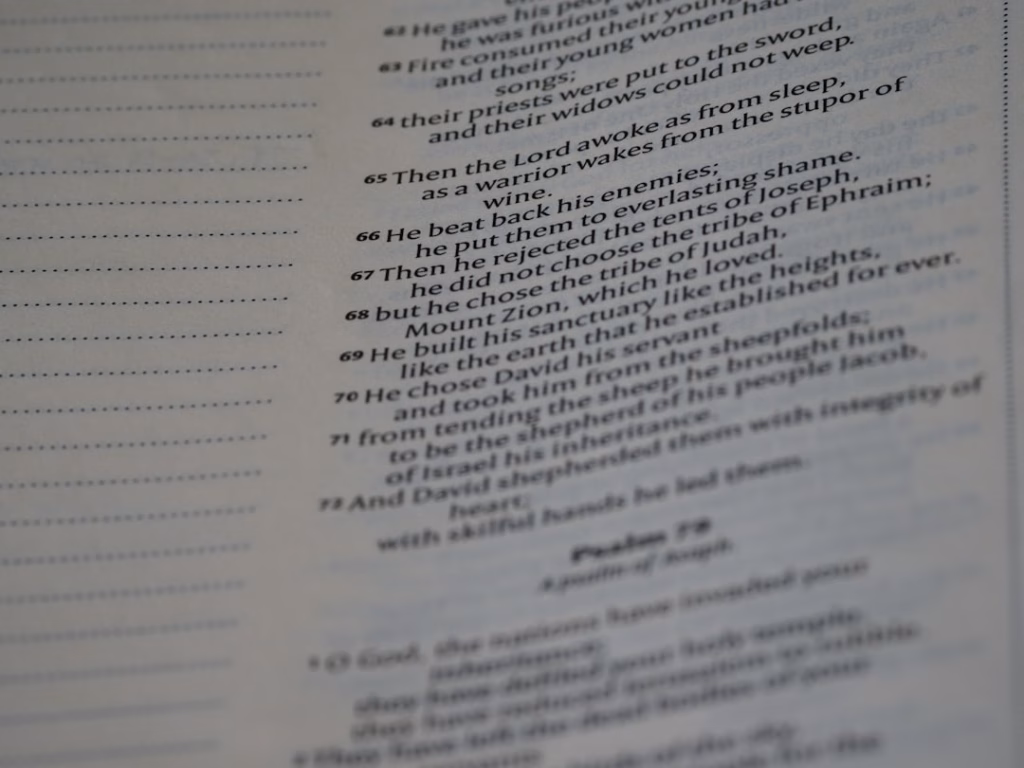 62 He gave his
he was furious
63 Fire consumed their
and their young women had
songs;
64 their priests were put to the sword,
and their widows could not weep.
65 Then the Lord awoke as from sleep,
as a warrior wakes from the stupor of
wine.
66 He beat back his enemies;
he put them to everlasting shame.
67 Then he rejected the tents of Joseph,
he did not choose the tribe of Ephraim;
68 but he chose the tribe of Judah,
Mount Zion, which he loved.
69 He built his sanctuary like the heights,
like the earth that he established for ever.
70 He chose David his servant
and took him from the sheepfolds;
71 from tending the sheep he brought him
to be the shepherd of his people Jacob,
of Israel his inheritance.
72 And David shepherded them with integrity of
heart;
with skilful hands he led them.
Psalm 79
A psalm of Asaph.
1 O God, the nations have invaded your
inheritance;
they have defiled your holy temple,
they have reduced Jerusalem to rubble.
They have left the dead bodies of your